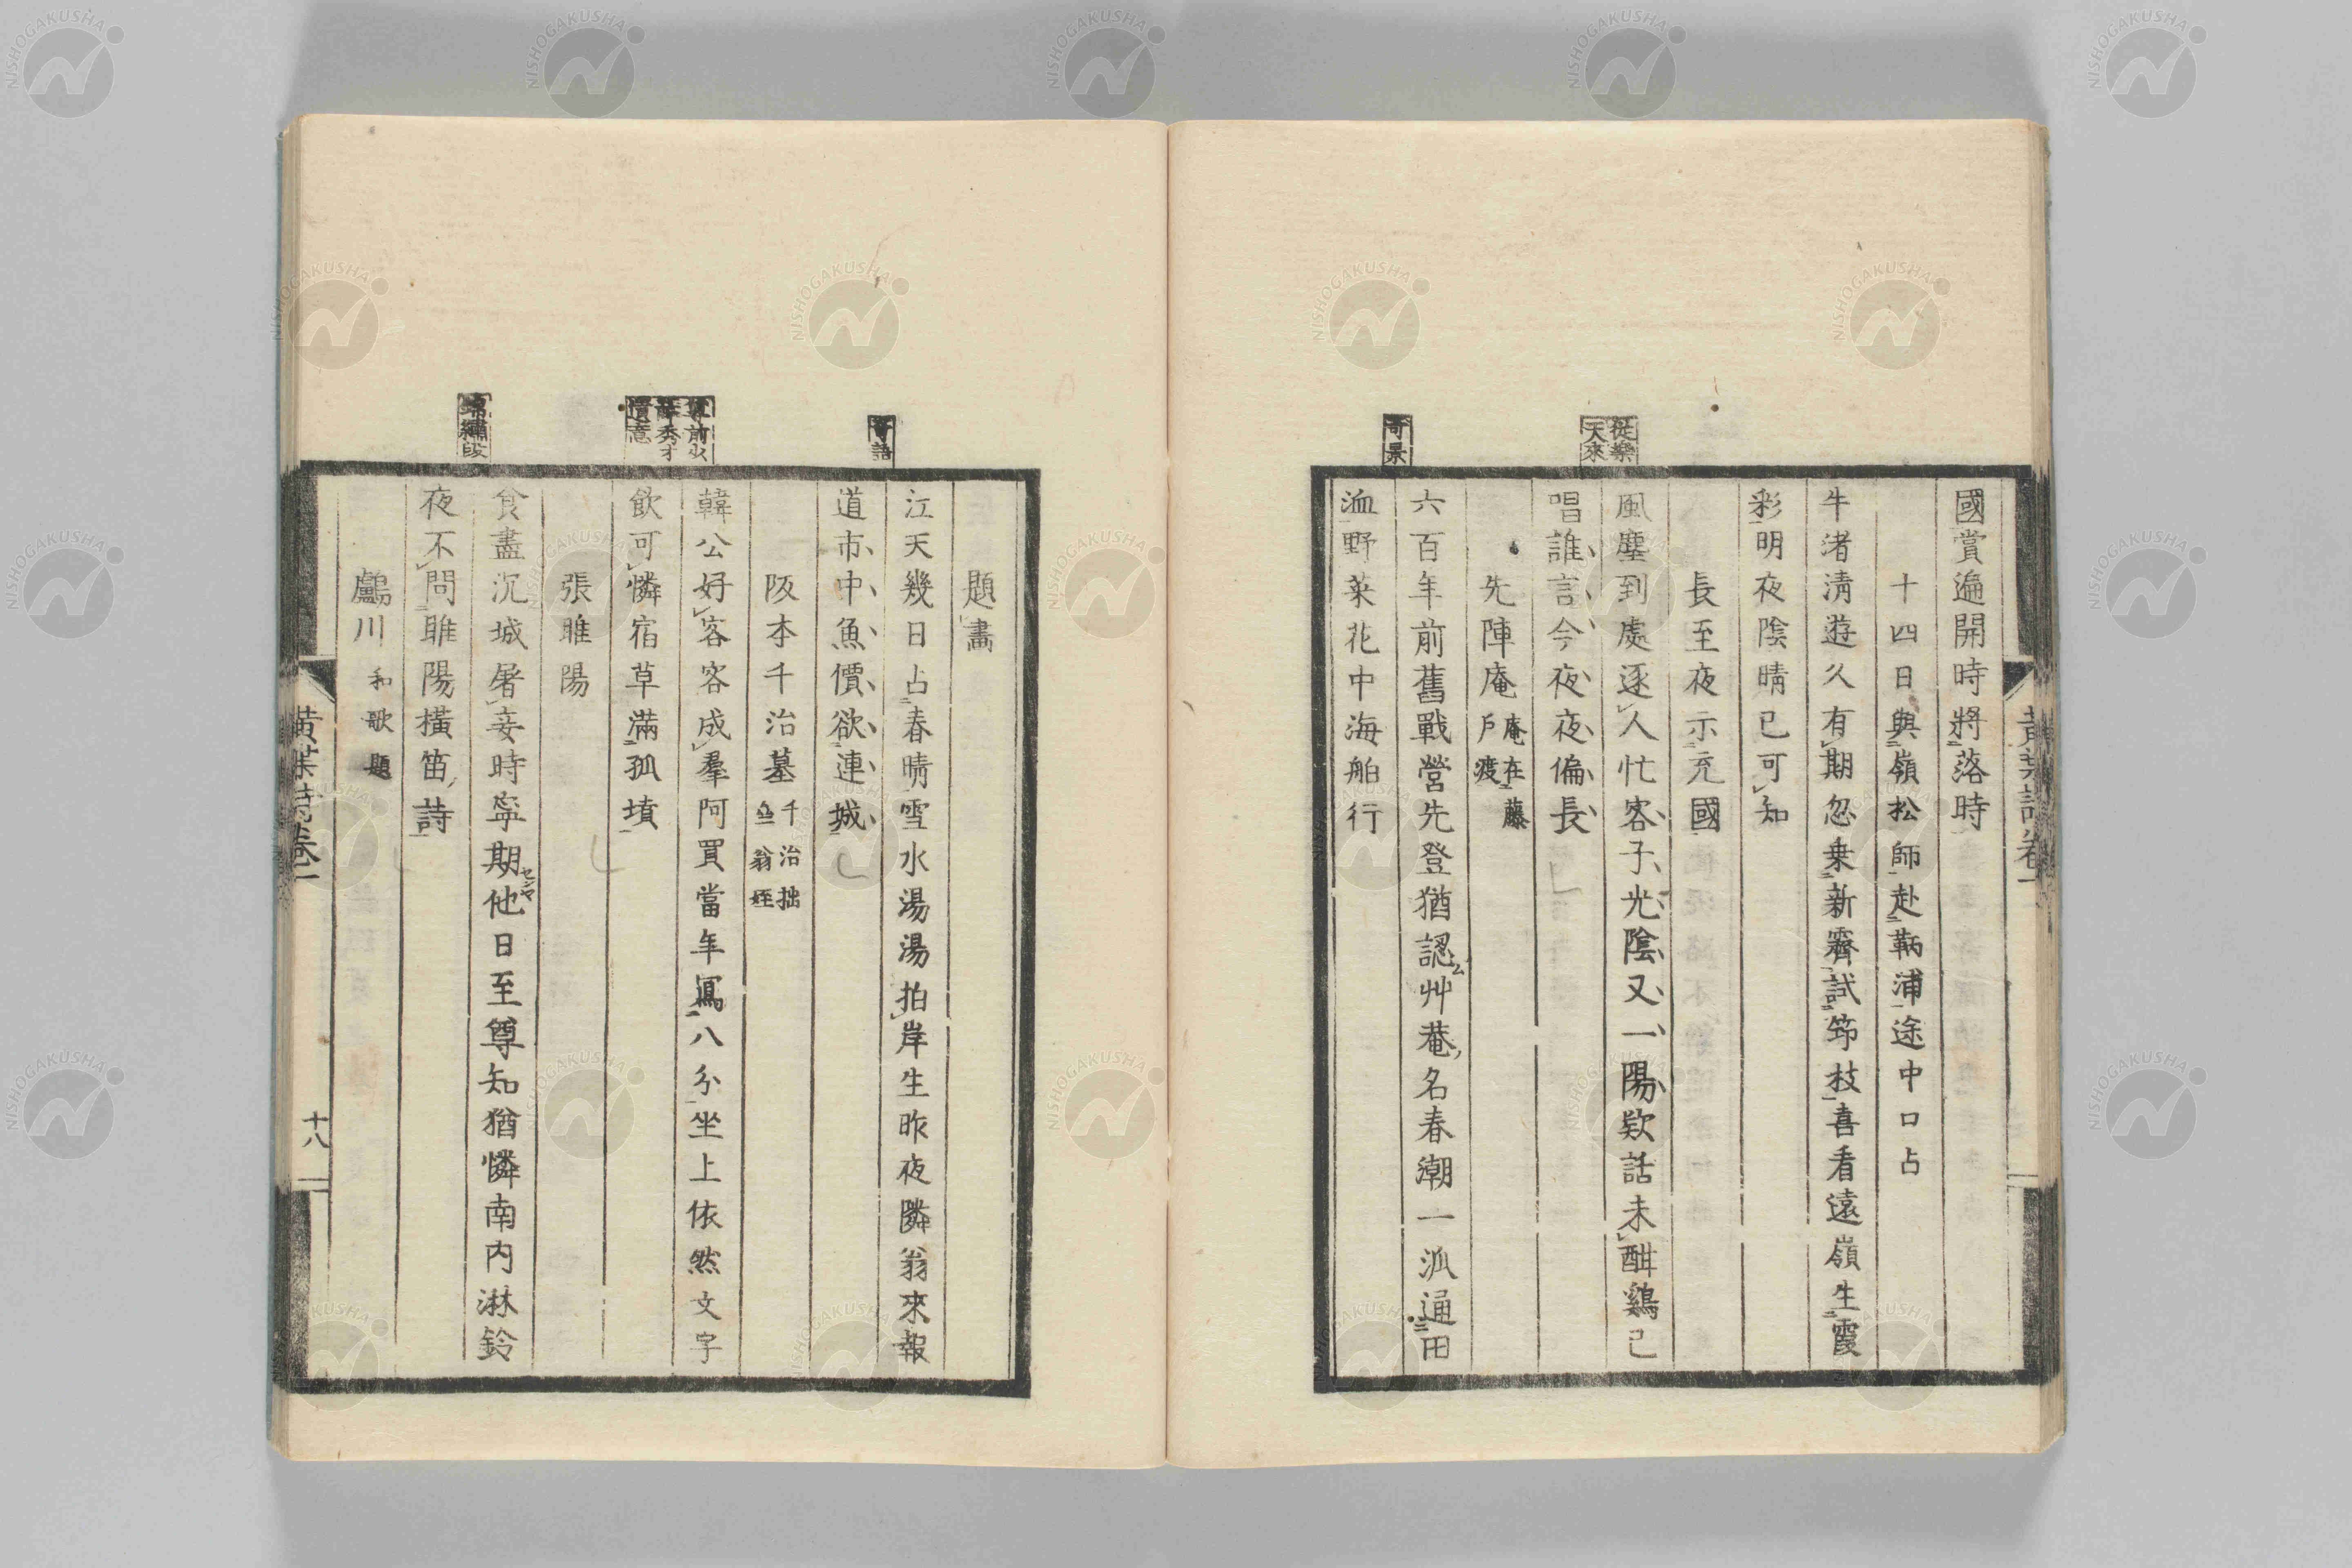 黄葉詩卷一
國賞遍開時將落時
十四日與嶺松師赴鞆浦途中口占
牛渚淸遊久有期忽乗新霽試筇枝喜看遠嶺生霞
彩明夜陰晴已可知
長至夜示充國
從樂
天來
風塵到處逐人忙客子光陰又一陽欵話未酣鷄已
唱誰言今夜夜偏長
先陣庵 庵在藤
戶渡
六百年前舊戰營先登猶認艸菴名春潮一派通田
奇景
洫野菜花中海舶行
題畵
江天幾日占春晴雪水湯湯拍岸生昨夜隣翁來報
奇語
道市中魚價欲連城
阪本千治墓 千治拙
翁姪
韓公好客客成羣阿買當年寫八分坐上依然文字
飲可憐宿草滿孤墳
張睢陽
食盡沉城屠妾時寧期他日至尊知猶憐南內淋鈴
セシヤ
夜不問睢陽橫笛詩
鸕川 和歌題
黄葉詩卷一
十八